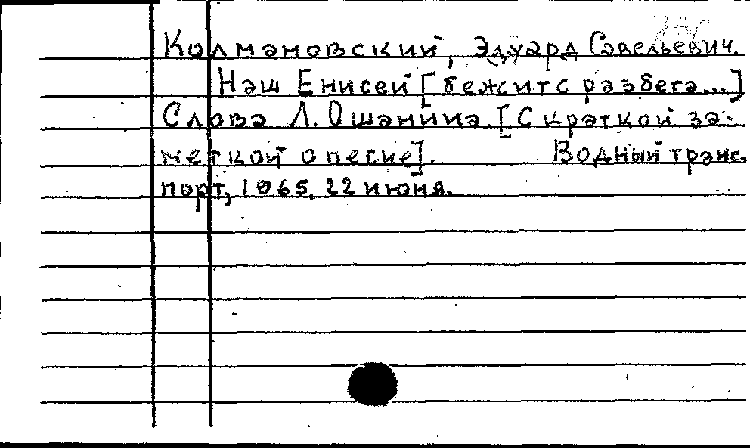 Колмановский, Эдуард Савельевич.
Наш Енисей [бежит с разбега...]
Слова Л. Ошанина [С краткой за-
меткой о песне]. Водный транс-
порт, 1965, 22 июня.